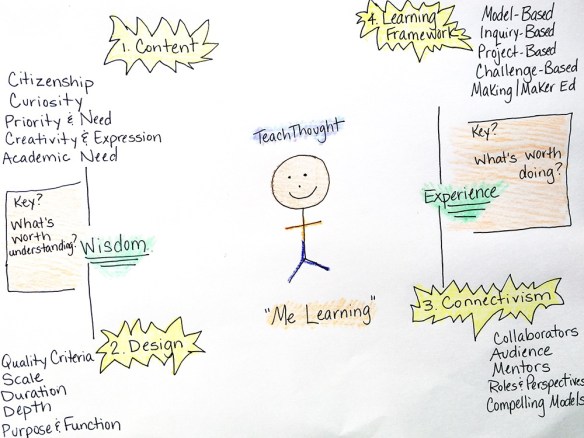 1. Content
Citizenship
Curiosity
Priority & Need
Creativity & Expression
Academic Need
Key?
What's
worth
understanding?
Wisdom
2. Design
Quality Criteria
Scale
Duration
Depth
Purpose & Function
TeachThought
"Me Learning"
4. Learning
Framework
Model-Based
Inquiry-Based
Project-Based
Challenge-Based
Making/Maker Ed
Key?
What's worth
doing?
Experience
3. Connectivism
Collaborators
Audience
Mentors
Roles & Perspectives
Compelling Models